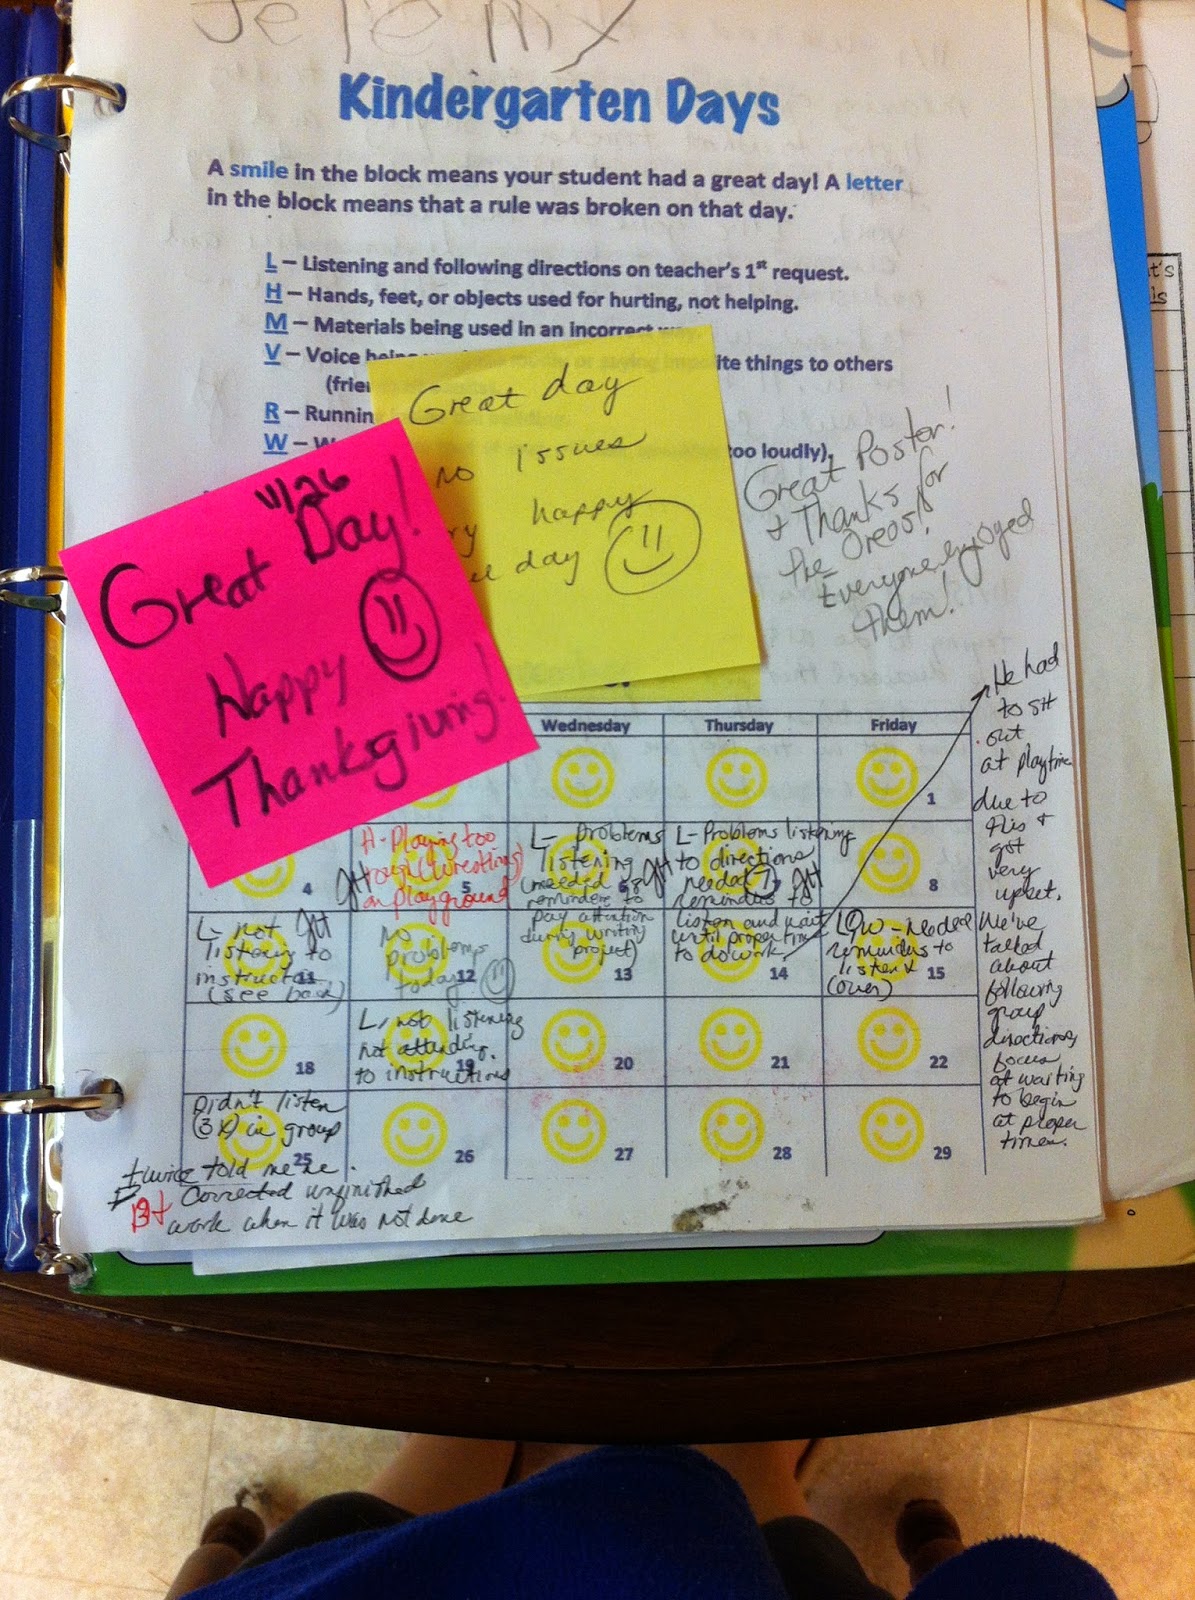 Jeremy
Kindergarten Days
A smile in the block means your student had a great day! A letter
in the block means that a rule was broken on that day.
L – Listening and following directions on teacher's 1st request.
H – Hands, feet, or objects used for hurting, not helping.
M – Materials being used in an incorrect
V – Voice ite things to others
(frie
R – Runnin
W – W too loudly).
Great day
no issues
happy
day
11/26
Great Day!
Happy
Thanksgiving!
Great Poster!
+ Thanks for
the Oreos!
Everyone enjoyed
them!
Wednesday Thursday Friday
1
H - Playing too
rough (wrestling)
on playground
L - problems
listening
(needed 8
reminders to
pay attention
during writing
project)
L - Problems listening
to directions
needed 7
reminders to
listen and wait
until proper time
to do work
4 5 6 7 8
L - not
listening to
instructa
(see back)
No
problems
today
L, W - needed
reminders to
listen &
(over)
11 12 13 14 15
L, not listening
not attending
to instructions
18 19 20 21 22
Didn't listen
(3x) in group
25 26 27 28 29
twice told me he
corrected unfinished
work when it was not done
He had
to sit
out
at playtime
due to
this +
got
very
upset.
We've
talked
about
following
group
directions,
focus
at waiting
to begin
at proper
times.
t's
ls